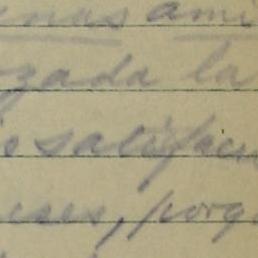 enas ami
zada la
e satisfac
eses, porq